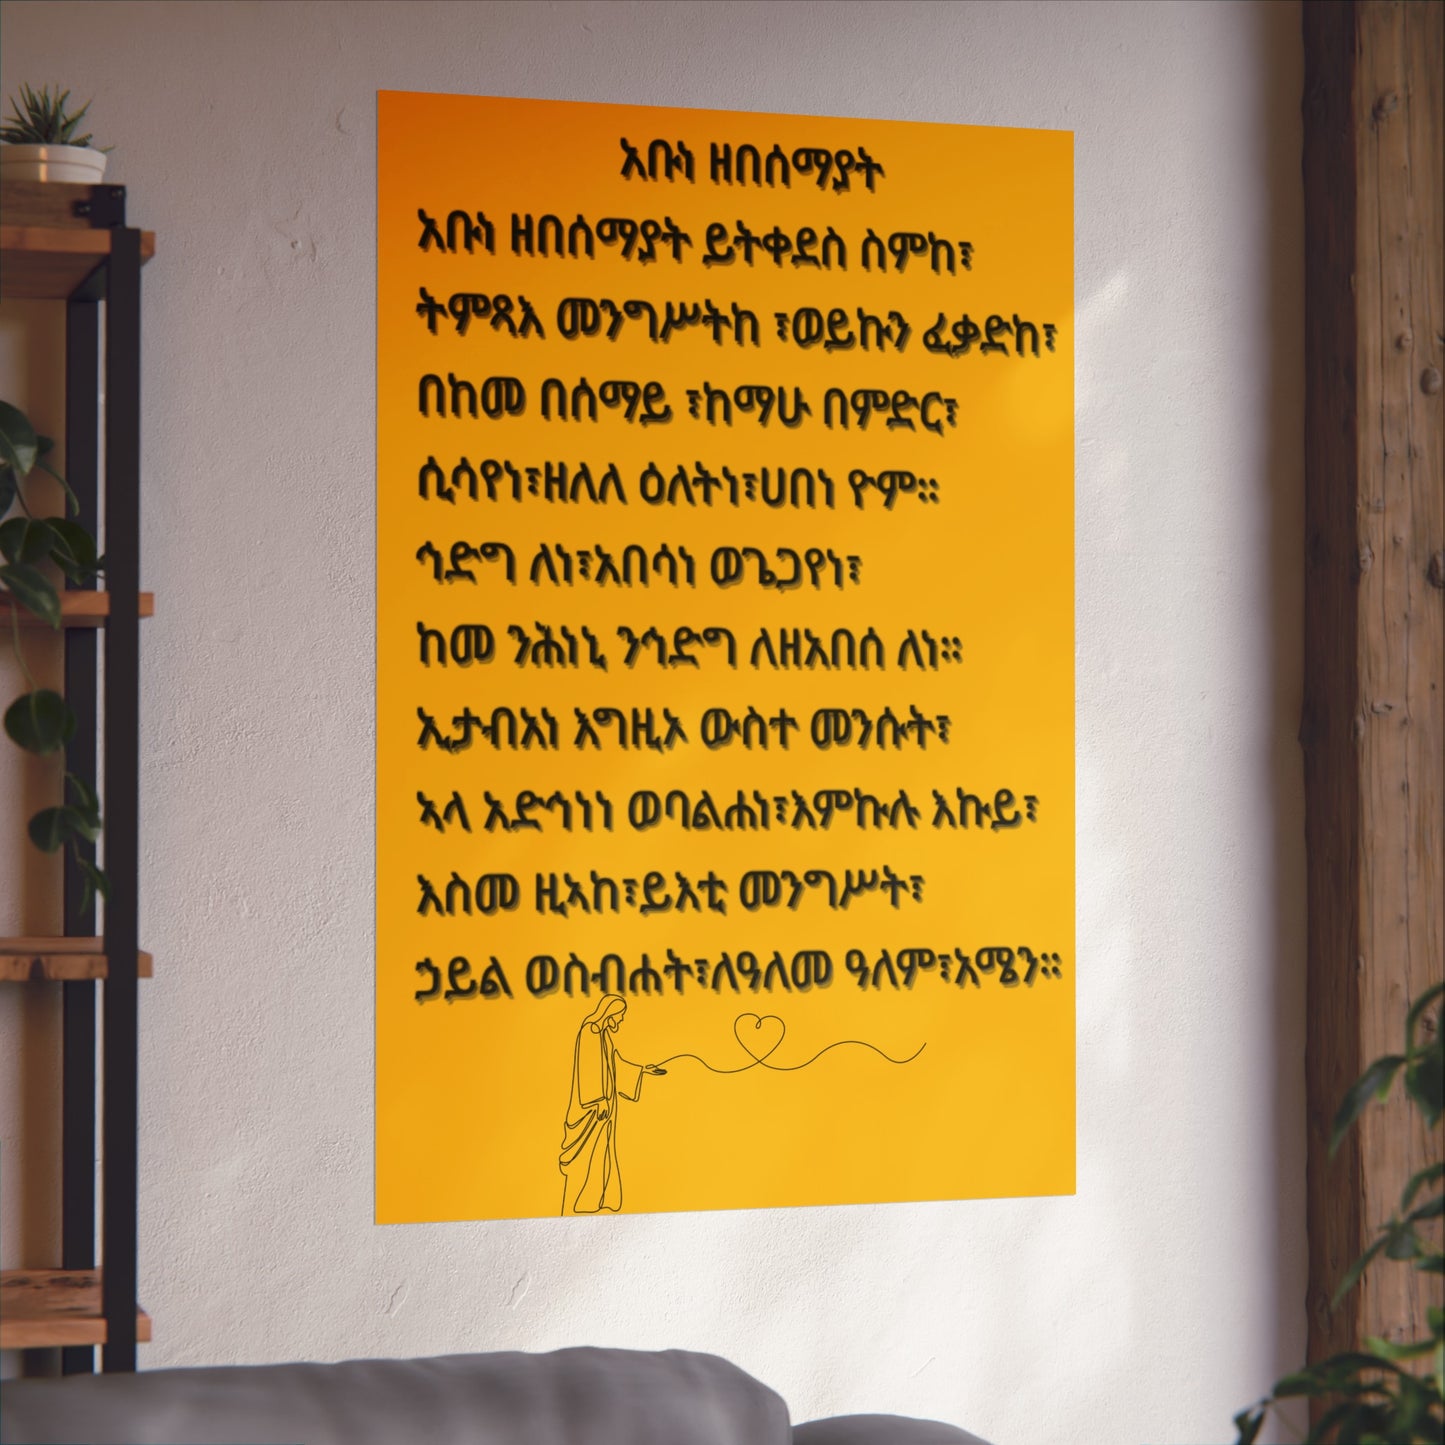 አቡነ ዘበሰማያት
አቡነ ዘበሰማያት ይትቀደስ ስምከ፣
ትምጻእ መንግሥትከ ፣ወይኩን ፈቃድከ፣
በከመ በሰማይ ፣ከማሁ በምድር፣
ሲሳየነ፣ዘለለ ዕለትነ፣ሀበነ ዮም።
ኅድግ ለነ፣አበሳነ ወጌጋየነ፣
ከመ ንሕነኒ ንኅድግ ለዘአበሰ ለነ።
ኢታብአነ እግዚኦ ውስተ መንሱት፣
ኣላ አድኅነነ ወባልሐነ፣እምኩሉ እኩይ፣
እስመ ዚኣከ፣ይእቲ መንግሥት፣
ኃይል ወስብሐት፣ለዓለመ ዓለም፣አሜን።